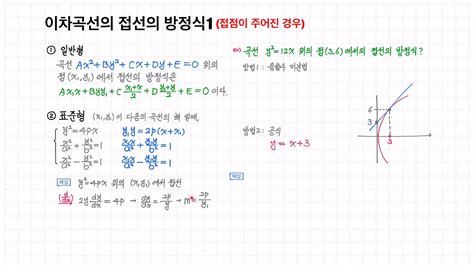 이차곡선의 접선의 방정식1 (접점이 주어진 경우)
① 일반형
곡선 Ax²+By²+Cx+Dy+E=0 위의
점(x₁,y₁)에서 접선의 방정식은
Ax₁x+By₁y+C(x₁+x)/2+D(y₁+y)/2+E=0 이다.
② 표준형 (x₁,y₁)이 다음의 곡선의 점일 때,
y²=4px y₁y=2p(x+x₁)
x²/a²+y²/b²=1
x²/a²-y²/b²=1
해설 y²=4px 위의 (x₁,y₁)에서 접선
2y dy/dx=4p → dy/dx=2p/y → m=2p/y₁
ex) 곡선 y²=12x 위의 점(3,6)에서의 접선의 방정식?
방법1: 음함수 미분법
방법2: 공식
y=x+3
해설
6
3
3